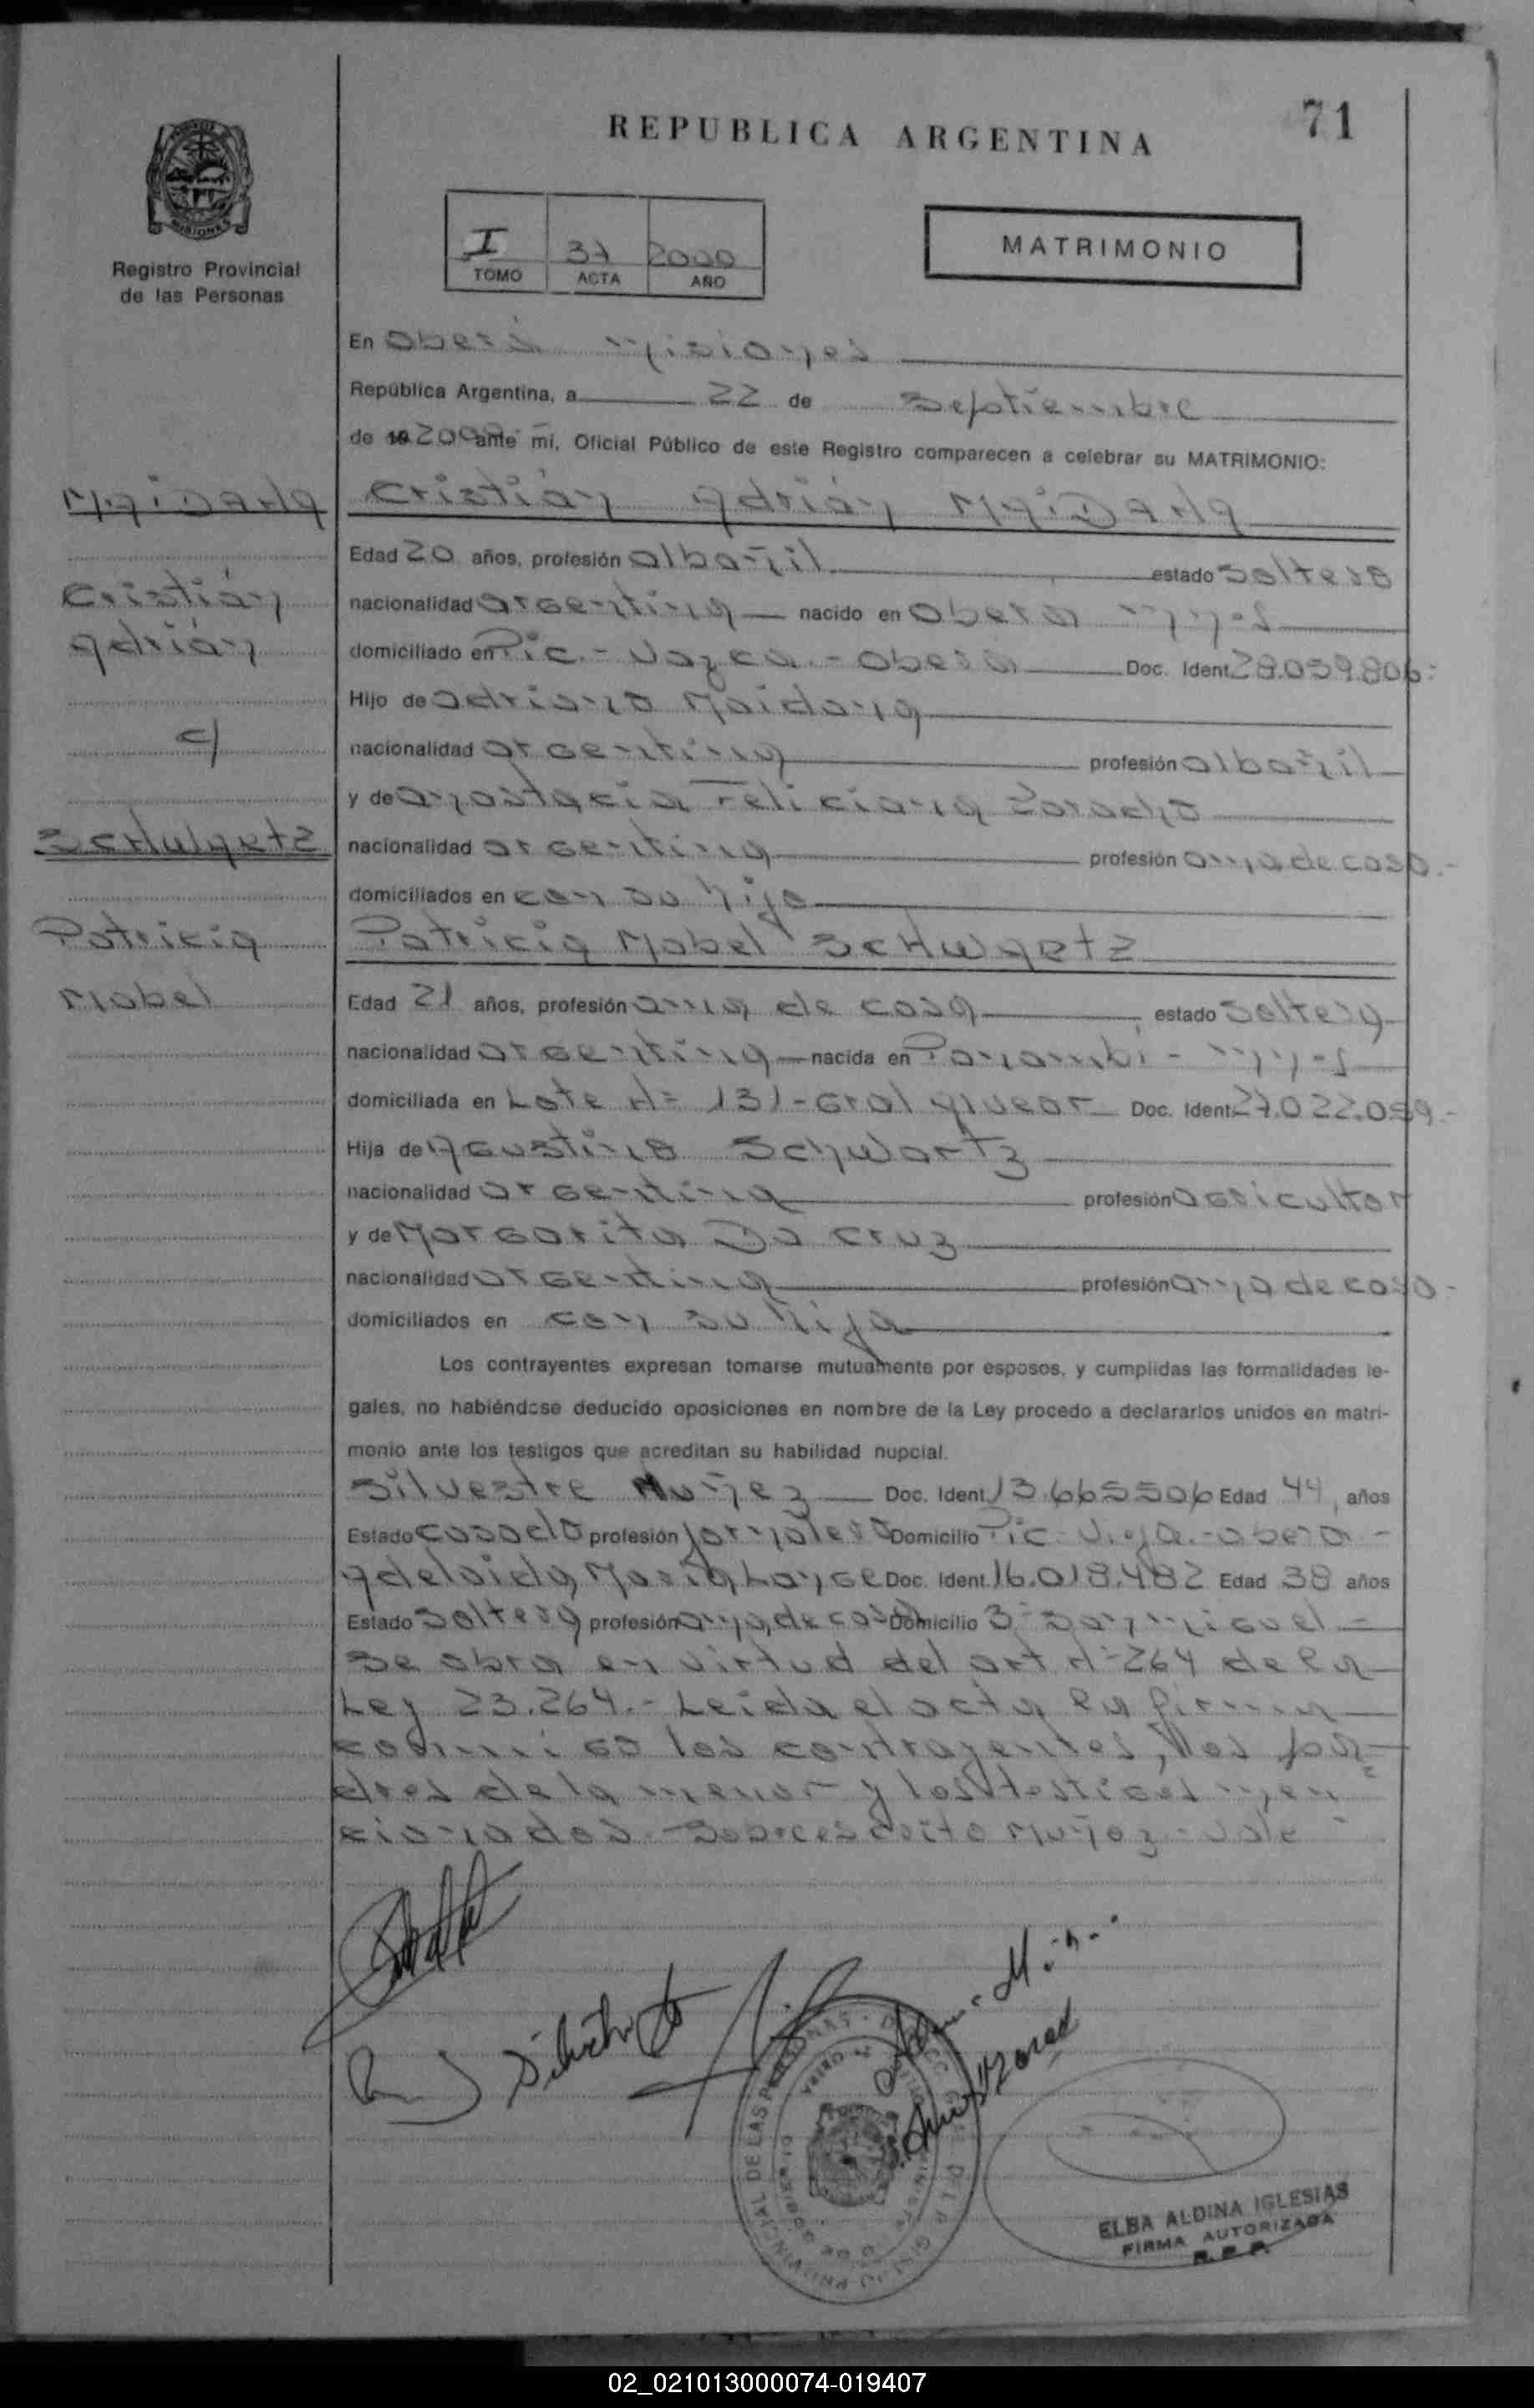 REPUBLICA ARGENTINA
71
MISIONES
Registro Provincial
de las Personas
I 37 2000
TOMO ACTA AÑO
MATRIMONIO
En Oberá Misiones
República Argentina, a 22 de Septiembre
de 19 2000 ante mí, Oficial Público de este Registro comparecen a celebrar su MATRIMONIO:
MAIDANA
Cristián Adrián MAIDANA
Edad 20 años, profesión albañil estado soltero
Cristián
nacionalidad argentina nacido en Oberá Mnes
Adrián
domiciliado en Pic.- Vazca.- Oberá Doc. Ident. 28.059.806.-
Hijo de Adriano Maidana
c/
nacionalidad argentina profesión albañil
y de Anastacia Feliciana Zoracho
SCHWARTZ
nacionalidad argentina profesión ama de casa.-
domiciliados en con su hijo
Patricia
Patricia Mabel SCHWARTZ
Mabel
Edad 21 años, profesión ama de casa estado soltera
nacionalidad argentina nacida en Panambí - Mnes
domiciliada en Lote N= 131 - Gral Alvear Doc. Ident. 27.022.059.-
Hija de Agustino Schwartz
nacionalidad argentina profesión agricultor
y de Margarita Da Cruz
nacionalidad argentina profesión ama de casa -
domiciliados en con su hija
Los contrayentes expresan tomarse mutuamente por esposos, y cumplidas las formalidades le-
gales, no habiéndose deducido oposiciones en nombre de la Ley procedo a declararlos unidos en matri-
monio ante los testigos que acreditan su habilidad nupcial.
Silvestre Nuñez Doc. Ident. 13.665506 Edad 44 años
Estado casado profesión jornalero Domicilio Pic. Vieja.- Oberá -
Adelaida María Lange Doc. Ident. 16.018.482 Edad 38 años
Estado soltera profesión ama de casa Domicilio B= San Miguel -
Se obra en virtud del art N=264 de la
Ley 23.264.- Leida el acta la firman
conmigo los contrayentes, los pa=
dres de la menor y los testigos men
cionados.- Sobreescrito Muñoz - Vale -
ELBA ALDINA IGLESIAS
FIRMA AUTORIZADA
R. P. P.
02_021013000074-019407